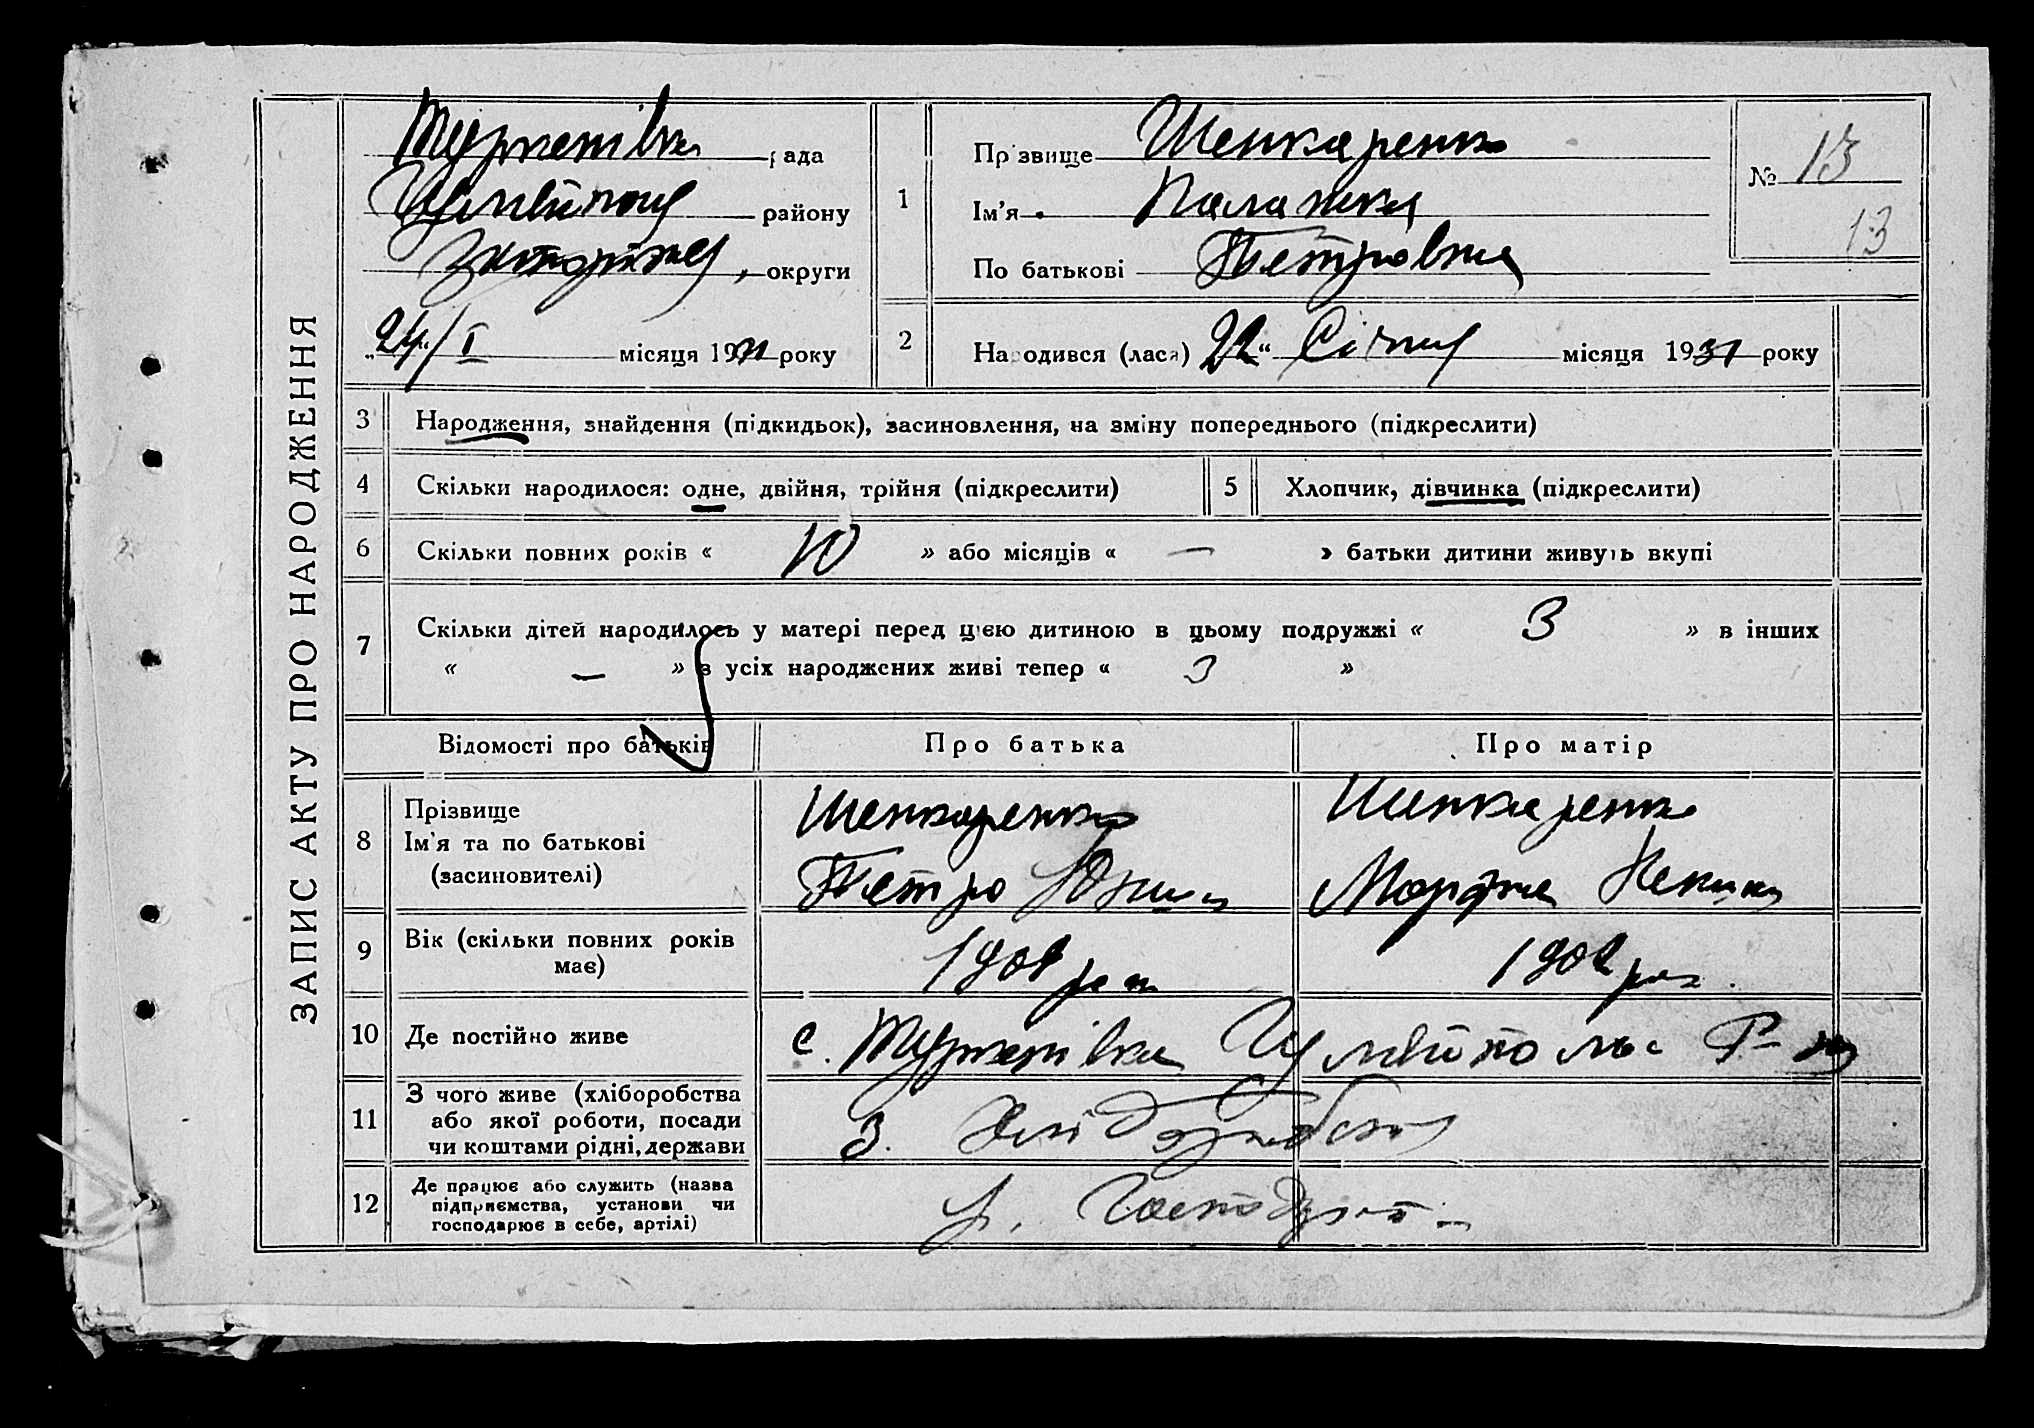 ЗАПИС АКТУ ПРО НАРОДЖЕННЯ
Туркенівка рада
району
округи
„24“/I місяця 1931 року
1
Прізвище Шенкаренко
Ім'я Палажка
По батькові Петровна
№ 13
13
2
Народився (лася) 22“ Січня місяця 1931 року
3 Народження, знайдення (підкидьок), засиновлення, на зміну попереднього (підкреслити)
4 Скільки народилося: одне, двійня, трійня (підкреслити)
5 Хлопчик, дівчинка (підкреслити)
6 Скільки повних років « 10 » або місяців « — » батьки дитини живуть вкупі
7 Скільки дітей народилось у матері перед цією дитиною в цьому подружжі « 3 » в інших
« — » з усіх народжених живі тепер « 3 »
Відомості про батьків Про батька Про матір
8 Прізвище
Ім'я та по батькові
(засиновителі)
Шенкаренко
Петро
Шенкаренко
9 Вік (скільки повних років
має)
10 Де постійно живе
с. Туркенівка
11 З чого живе (хліборобства
або якої роботи, посади
чи коштами рідні, держави
З.
12 Де працює або служить (назва
підприємства, установи чи
господарює в себе, артілі)